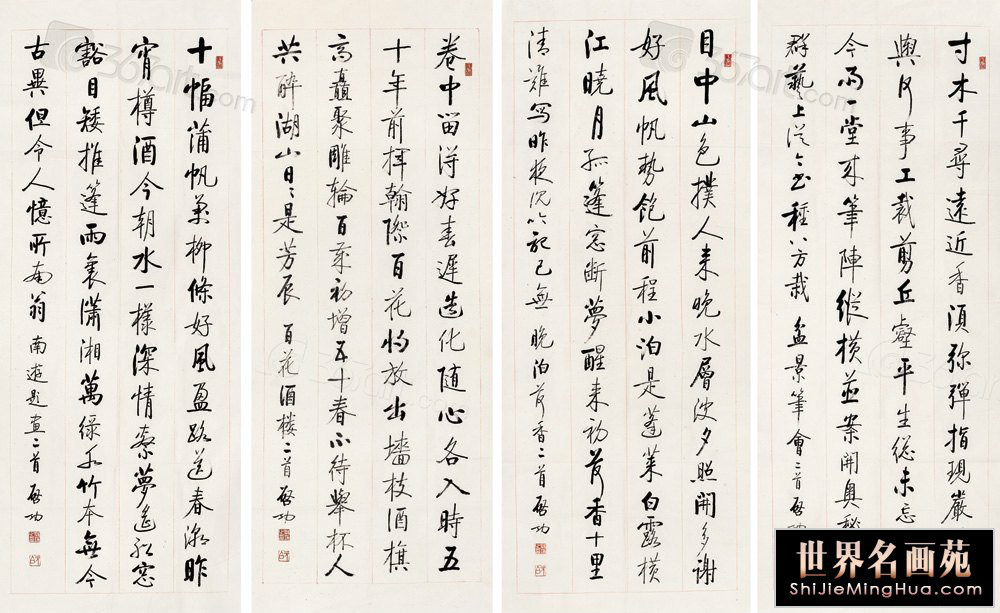 寸木千尋遠近香須弥彈指現嚴
事工裁剪丘壑平生総未忘
今雨一堂成筆陣縱橫並案開奥秘
群藝上種八方栽 盆景筆會二首啓功
目中山色撲人来晚水層波夕照開多謝
好風帆勢飽前程小泊是蓬萊白露横
江曉月孤篷窓断夢醒来初荷香十里
清難寫昨夜沉吟記已無 晚泊荷香二首啓功
卷中留得好春遲造化随心各入時五
十年前揮翰際百花將放出墻枝酒旗
高矗聚雕輪百歲初增五十春不待舉杯人
共醉湖山日々是芳辰 百花酒樓二首啓功
十幅蒲帆萬柳條好風盈路送春潮昨
宵樽酒今朝水一樣深情索夢遥船窓
豁目矮推篷雨裏瀟湘萬綠叢竹本無今
古異但令人憶所南翁 南遊題畫二首啓功
世界名画苑
ShiJieMingHua.Com